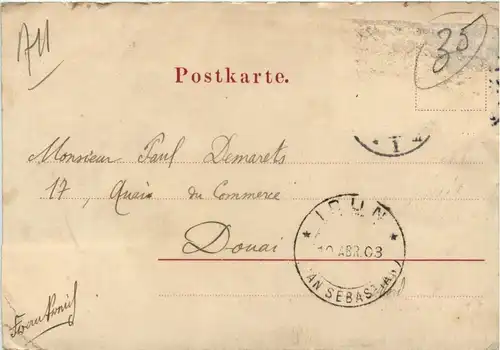 35
Postkarte.
Monsieur Paul Demarets
17, Quais du Commerce
Douai
IRUN
10 ABR.03
(SAN SEBASTIAN)